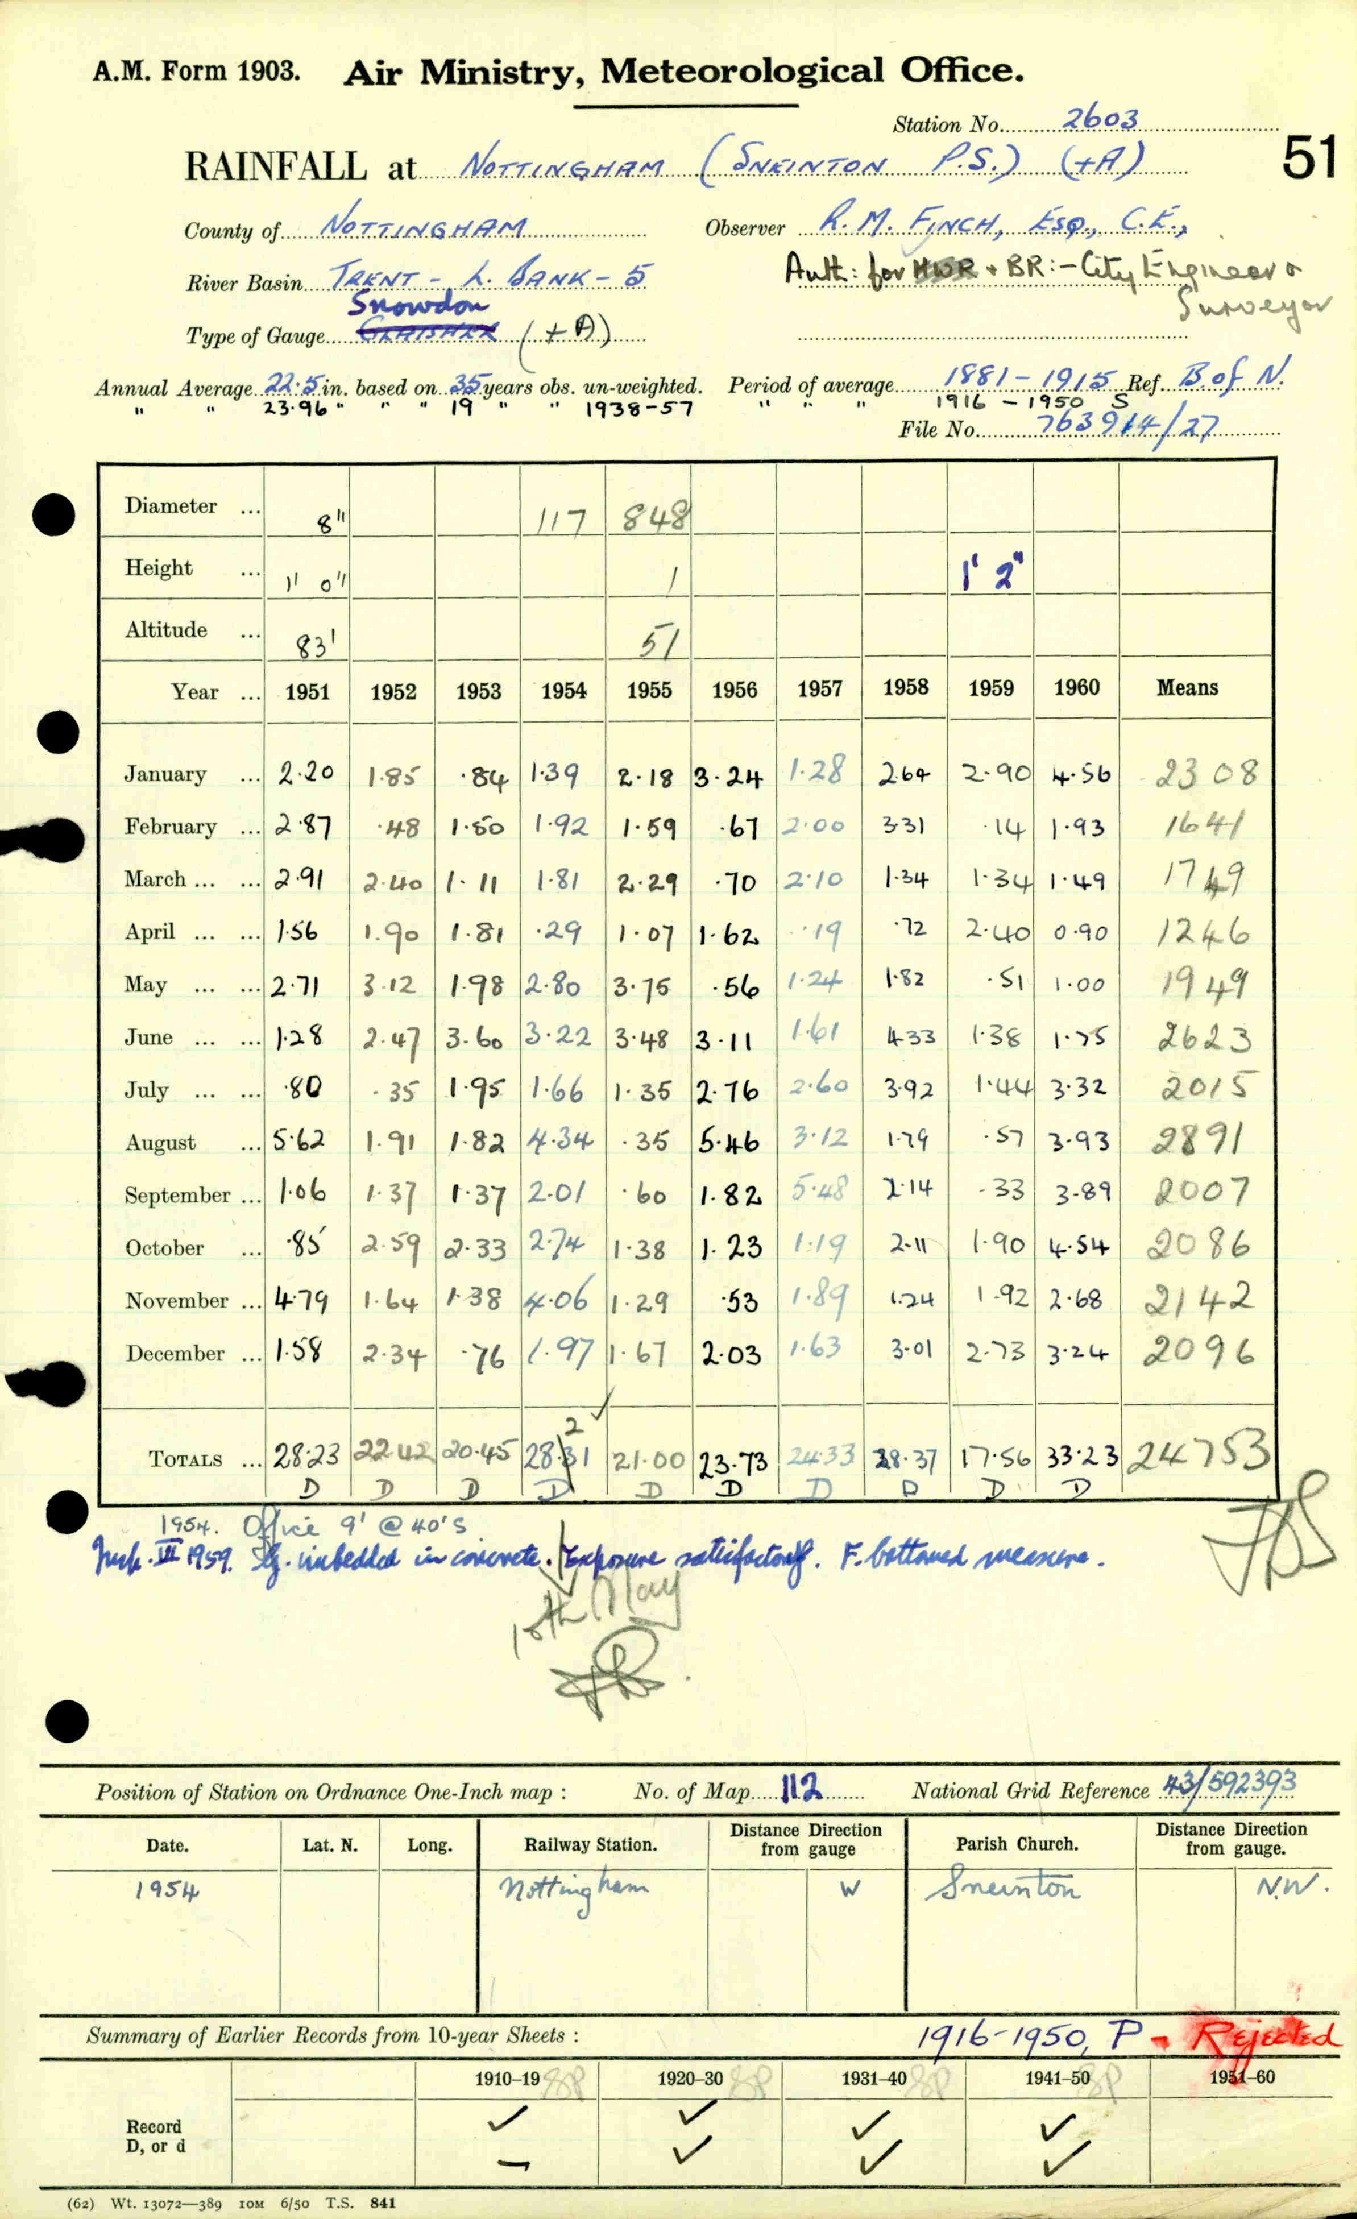 A.M. Form 1903. Air Ministry, Meteorological Office.
Station No. 2603
RAINFALL at NOTTINGHAM (SNEINTON P.S.) (+A) 51
County of NOTTINGHAM Observer R. M. FINCH, ESQ., C.E.,
River Basin TRENT - L. BANK - 5 Auth: for HWR + BR:- City Engineer &
Surveyor
Snowdon
Type of Gauge GLAISHER (+A)
Annual Average 22.5 in. based on 35 years obs. un-weighted. Period of average 1881-1915 Ref. B of N.
" " 23.96 " " " 19 " " 1938-57 " " " 1916 - 1950 S
File No. 763914/27
Diameter ... 8" 117 848
Height ... 1' 0" 1 1' 2"
Altitude ... 83' 51
Year ... 1951 1952 1953 1954 1955 1956 1957 1958 1959 1960 Means
January ... 2.20 1.85 .84 1.39 2.18 3.24 1.28 2.64 2.90 4.56 2308
February ... 2.87 .48 1.50 1.92 1.59 .67 2.00 3.31 .14 1.93 1641
March ... ... 2.91 2.40 1.11 1.81 2.29 .70 2.10 1.34 1.34 1.49 1749
April ... ... 1.56 1.90 1.81 .29 1.07 1.62 .19 .72 2.40 0.90 1246
May ... ... 2.71 3.12 1.98 2.80 3.75 .56 1.24 1.82 .51 1.00 1949
June ... ... 1.28 2.47 3.60 3.22 3.48 3.11 1.61 4.33 1.38 1.75 2623
July ... ... .80 .35 1.95 1.66 1.35 2.76 2.60 3.92 1.44 3.32 2015
August ... 5.62 1.91 1.82 4.34 .35 5.46 3.12 1.79 .57 3.93 2891
September ... 1.06 1.37 1.37 2.01 .60 1.82 5.48 2.14 .33 3.89 2007
October ... .85 2.59 2.33 2.74 1.38 1.23 1.19 2.11 1.90 4.54 2086
November ... 4.79 1.64 1.38 4.06 1.29 .53 1.89 1.24 1.92 2.68 2142
December ... 1.58 2.34 .76 1.97 1.67 2.03 1.63 3.01 2.73 3.24 2096
2 ✓
TOTALS ... 28.23 22.42 20.45 28.31 21.00 23.73 24.33 28.37 17.56 33.23 24753
D D D D D D D D D D
1954. Office 9' @ 40'S
Insp. III 1959. Sg. imbedded in concrete. Exposure satisfactory. F. bottomed measure.
10th May
Position of Station on Ordnance One-Inch map : No. of Map 112 National Grid Reference 43/592393
Date. Lat. N. Long. Railway Station. Distance from gauge Direction Parish Church. Distance from gauge. Direction
1954 Nottingham W Sneinton N.W.
Summary of Earlier Records from 10-year Sheets : 1916-1950, P - Rejected
1910–19 SP 1920–30 SP 1931–40 SP 1941–50 SP 1951–60
Record ✓ ✓ ✓ ✓
D, or d – ✓ ✓ ✓
(62) Wt. 13072—389 10M 6/50 T.S. 841